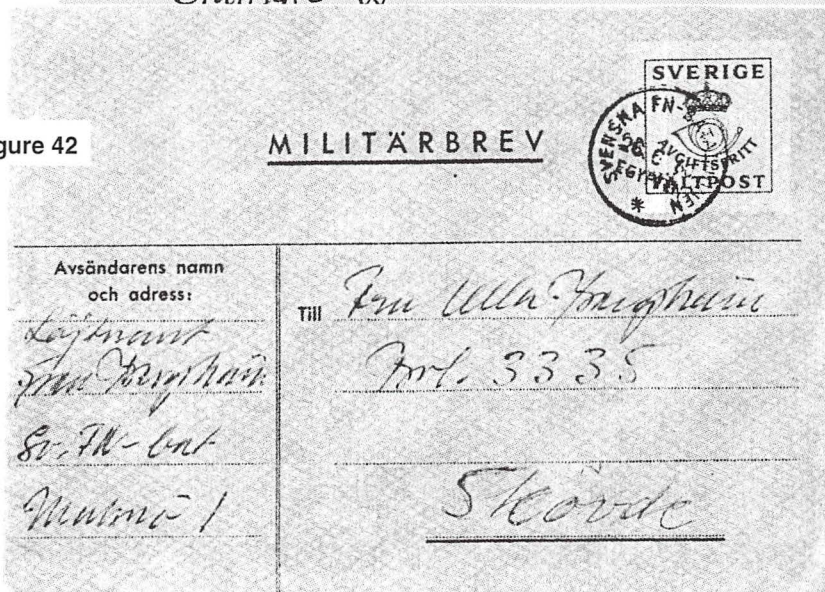 gure 42
MILITÄRBREV
SVERIGE
AVGIFTSFRITT
FÄLTPOST
SVENSKA FN-
EGYPTEN
Avsändarens namn
och adress:
Löjtnant
Sv. FN-bat
Malmö 1
Till Fru Ulla
3335
Skövde